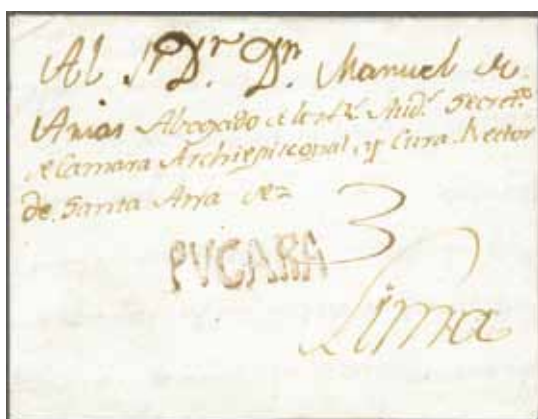 Al Sr. Dr. Dn. Manuel de
Arias Abogado de Rl. Audª. Secretº
de Camara Archiepiscopal, y Cura Rector
de Santa Anna de
3
PVCARA
Lima